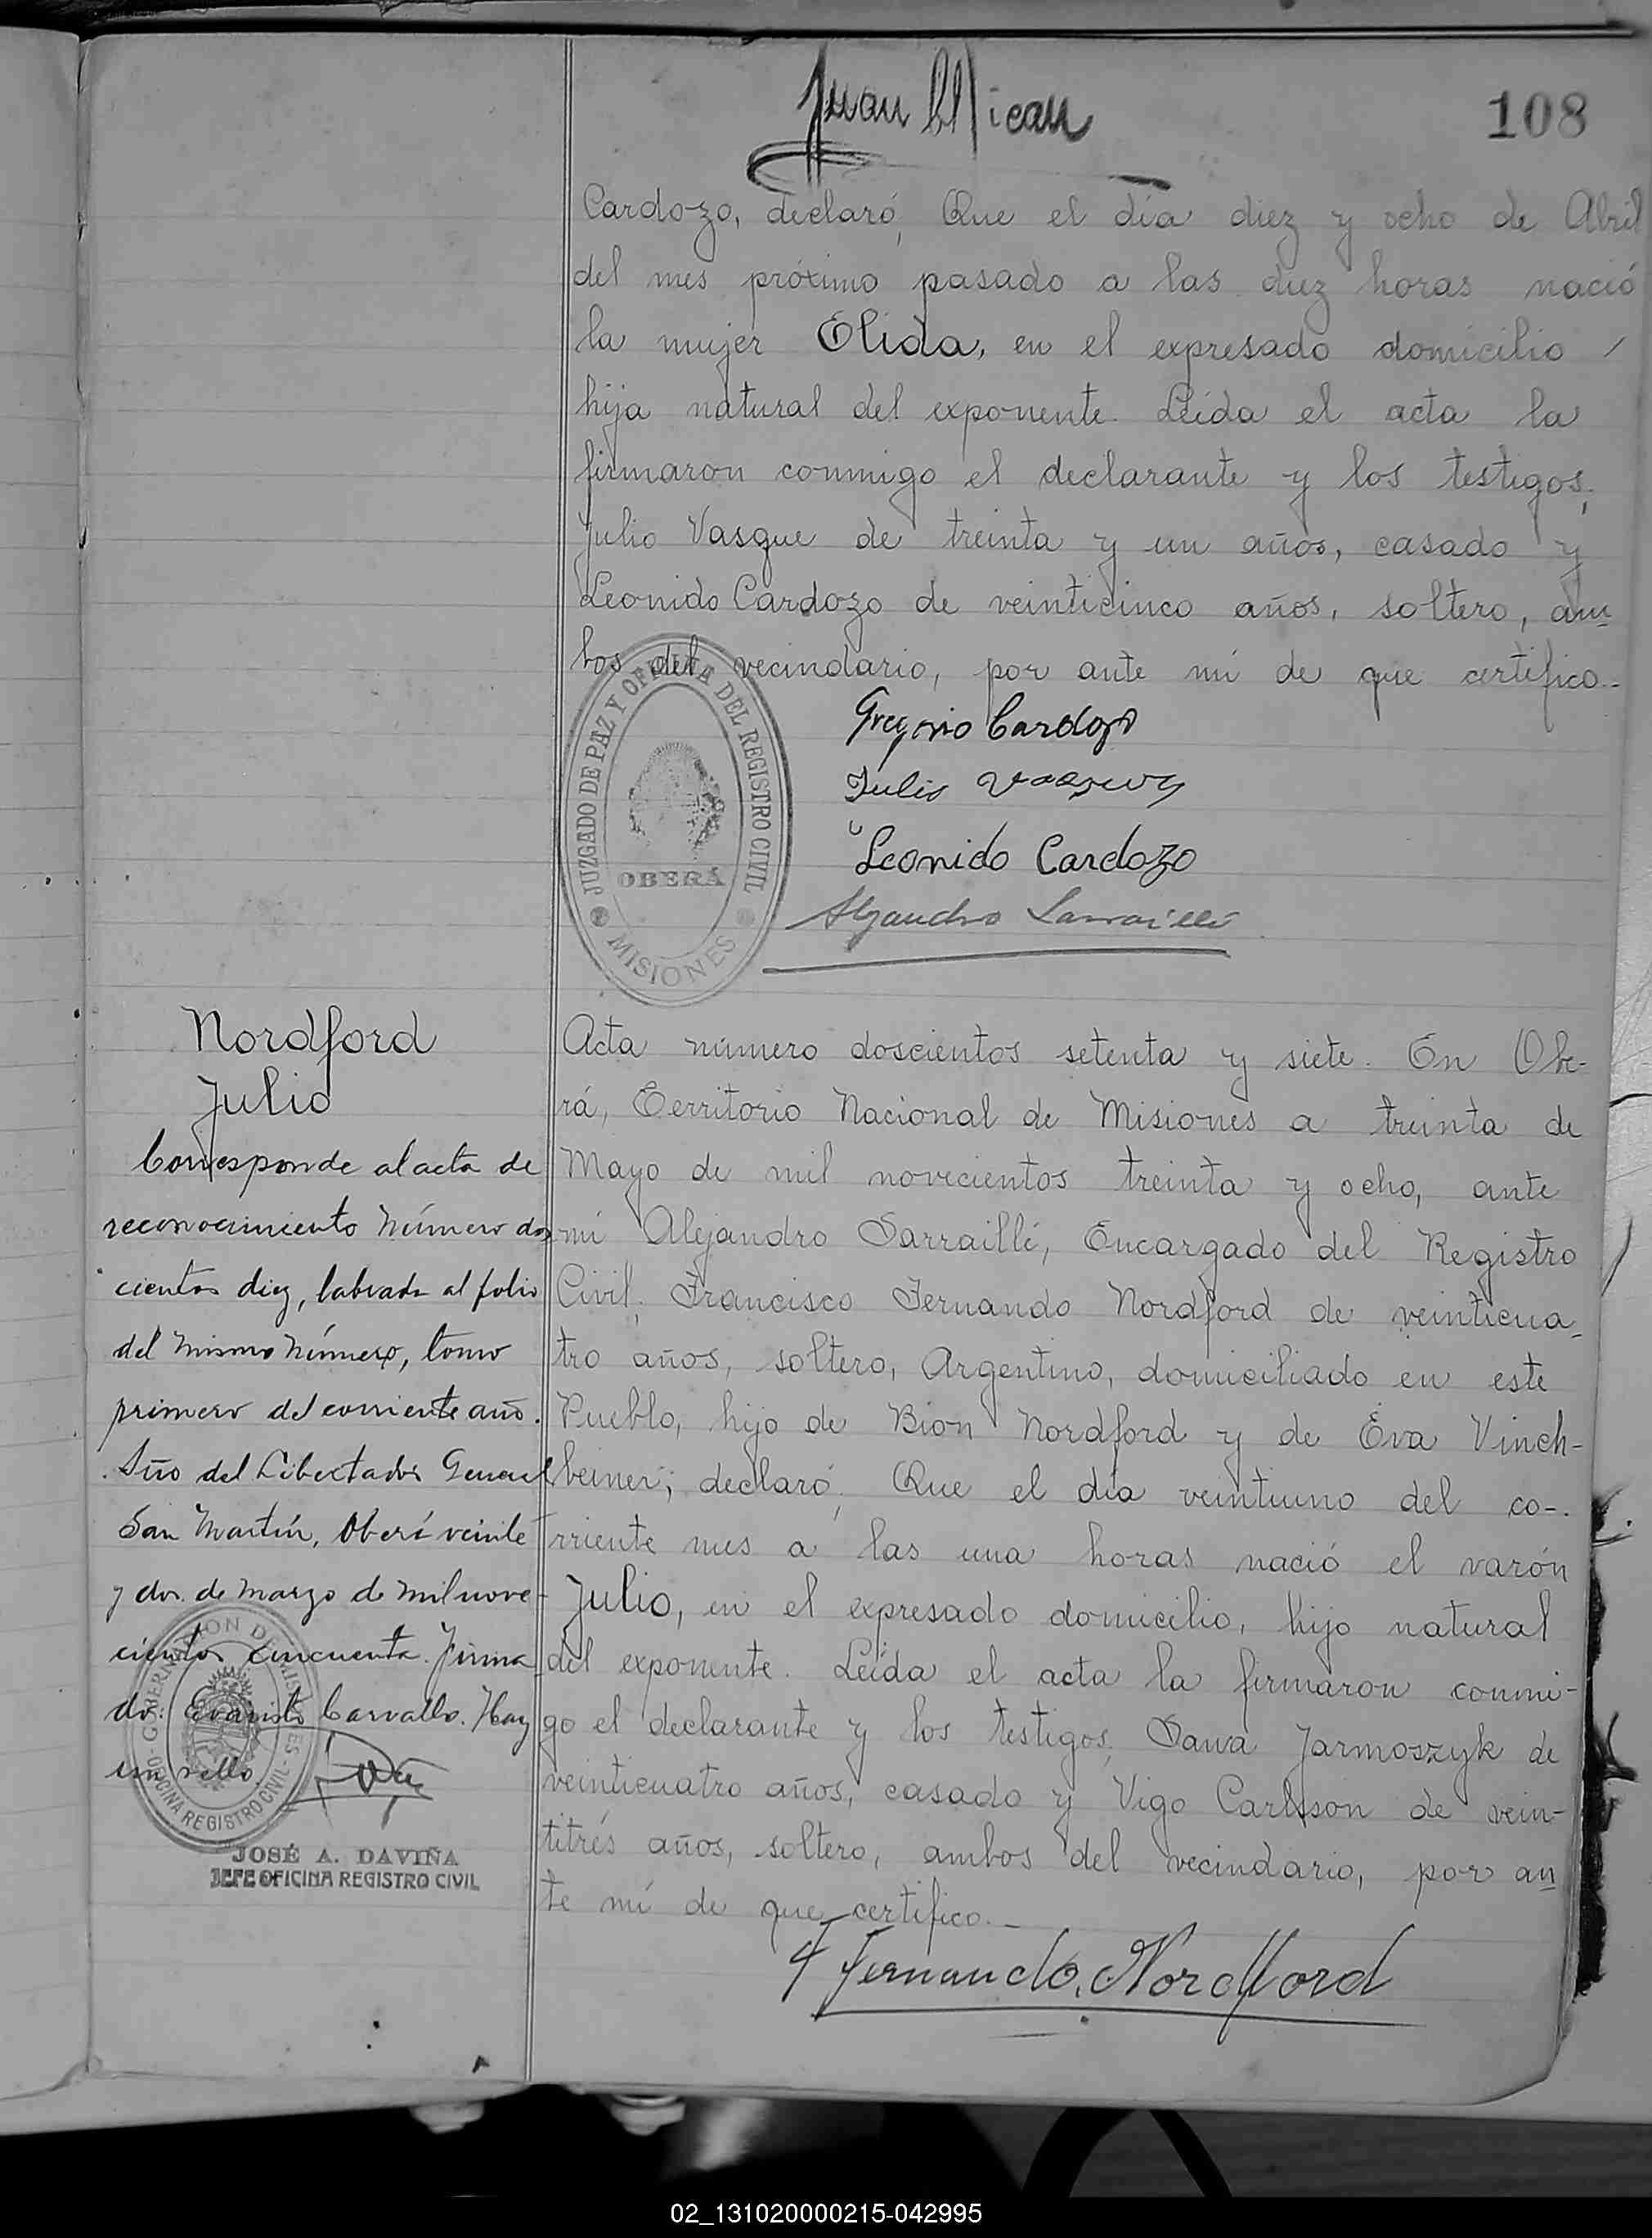 108
Juan
Cardozo, declaró, Que el día diez y ocho de Abril
del mes próximo pasado a las diez horas nació
la mujer Elida, en el expresado domicilio
hija natural del exponente. Leída el acta la
firmaron conmigo el declarante y los testigos,
Julio Vasque de treinta y un años, casado y
Leonido Cardozo de veinticinco años, soltero, am-
bos del vecindario, por ante mí de que certifico.-
JUZGADO DE PAZ Y OFICINA DEL REGISTRO CIVIL
OBERÁ
MISIONES
Gregorio Cardozo
Julio
Leonido Cardozo
Alejandro Sarraillé
Nordford
Julio
Corresponde al acta de
reconocimiento número dos
cientos diez, labrada al folio
del mismo número, tomo
primero del corriente año.
Año del Libertador General
San Martín, Oberá veinte
y dos de marzo de mil nove-
cientos cincuenta. Firma
do: Evaristo Carvallo. Hay
un sello.
GOBERNACION DE MISIONES
OFICINA REGISTRO CIVIL
JOSÉ A. DAVIÑA
JEFE OFICINA REGISTRO CIVIL
Acta número doscientos setenta y siete. En Obe-
rá, Territorio Nacional de Misiones a treinta de
Mayo de mil novecientos treinta y ocho, ante
mí Alejandro Sarraillé, Encargado del Registro
Civil, Francisco Fernando Nordford de veinticua-
tro años, soltero, Argentino, domiciliado en este
Pueblo, hijo de Bion Nordford y de Eva Vinch-
beiner; declaró, Que el día veintiuno del co-
rriente mes a las una horas nació el varón
Julio, en el expresado domicilio, hijo natural
del exponente. Leída el acta la firmaron conmi-
go el declarante y los testigos, Sawa Jarmoszyk de
veinticuatro años, casado y Vigo Carlsson de vein-
titrés años, soltero, ambos del vecindario, por an
te mí de que certifico.-
F Fernando Nordford
02_131020000215-042995